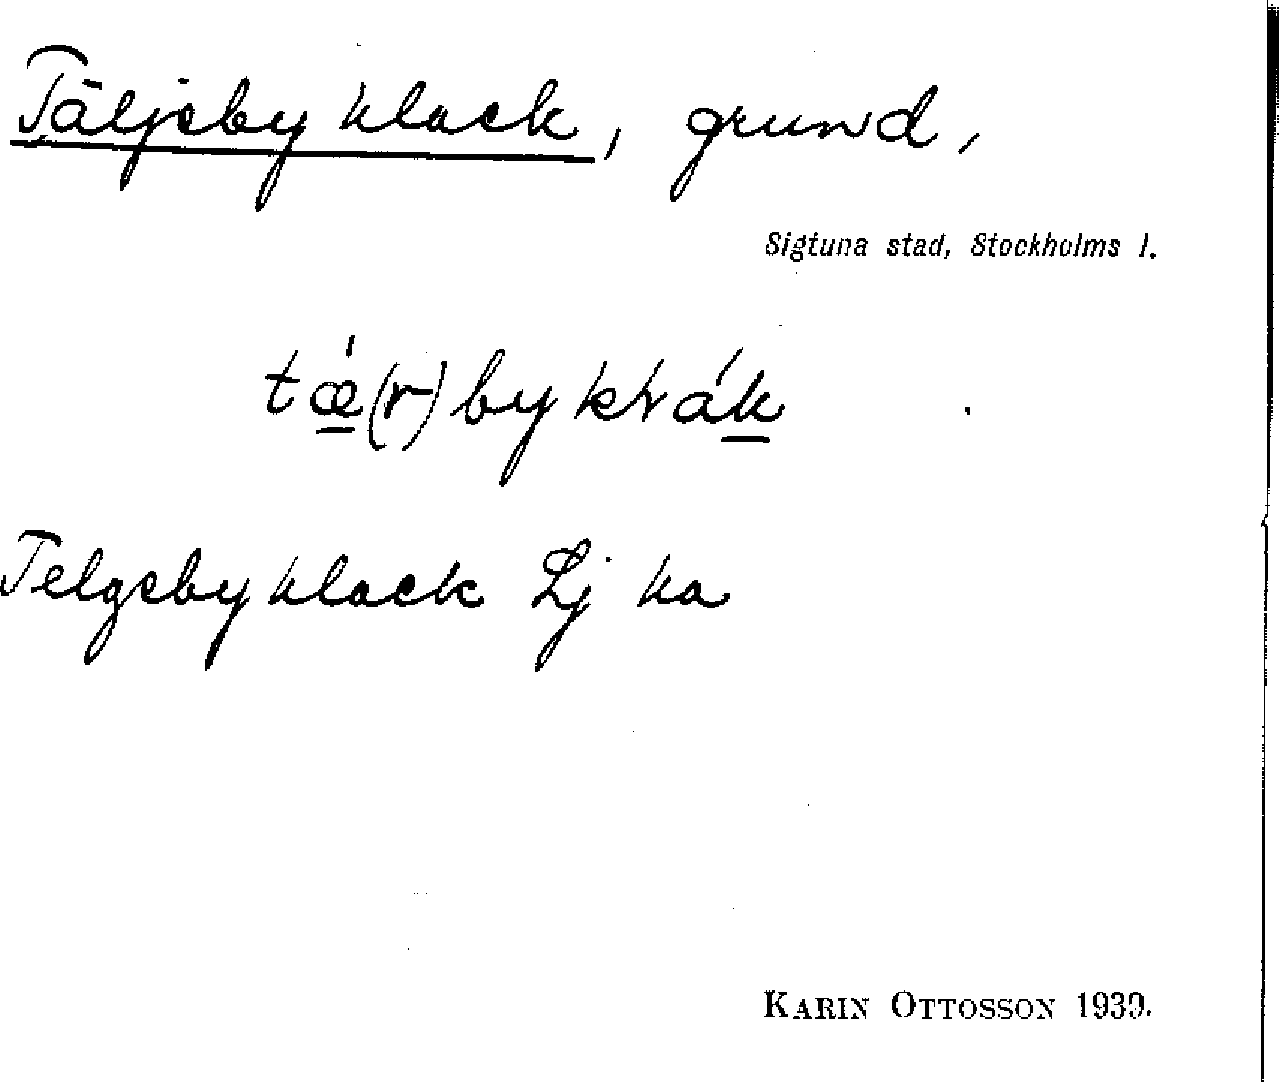 Täljeby klack, grund,
Sigtuna stad, Stockholms l.
tǽ(r)by klrák
Telgeby klack Lj ka
KARIN OTTOSSON 1939.